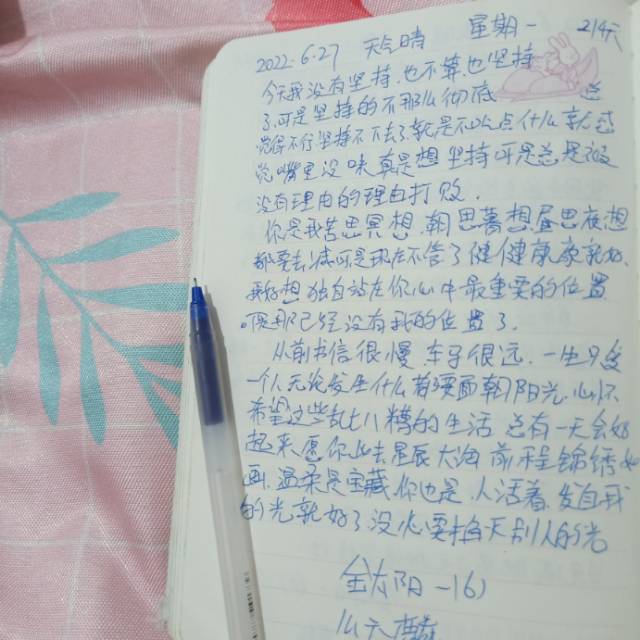 2022.6.27 天气晴 星期一 21:45
今天我没有坚持 也不算也坚持
了,可是坚持的不那么彻底
觉得不行坚持不下去了就是不吃点什么就感
觉嘴里没味 真是想坚持可是总是被
没有理由的理由打败.
你是我苦思冥想 朝思暮想 昼思夜想
都要去减可是现在不管了健健康康就好.
我好想独自站在你心中最重要的位置
那已经没有我的位置了.
从前书信很慢 车子很远 一生只爱
一个人 无论发生什么都要面朝阳光 心怀
希望这些乱七八糟的生活 总有一天会好
起来 愿你此去星辰大海 前程锦绣如
画 温柔是宝藏 你也是 人活着 发自我
的光就好了 没必要挡别人的光